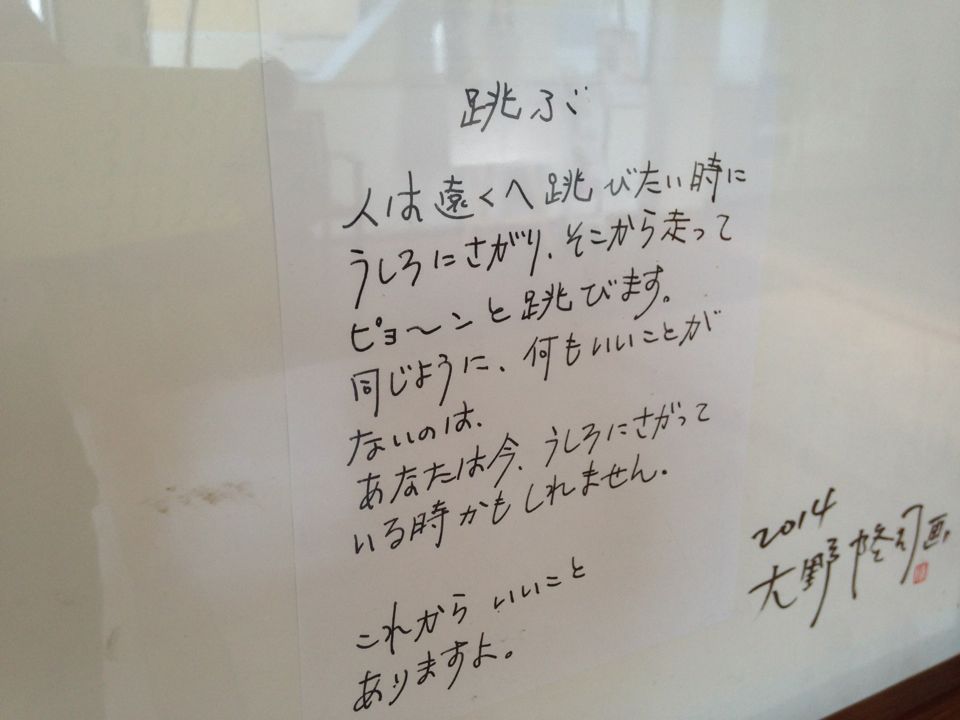 跳ぶ
人は遠くへ跳びたい時に
うしろにさがり、そこから走って
ピョ〜ンと跳びます。
同じように、何もいいことが
ないのは、
あなたは今、うしろにさがって
いる時かもしれません。
これから いいこと
ありますよ。
2014
大野修司画